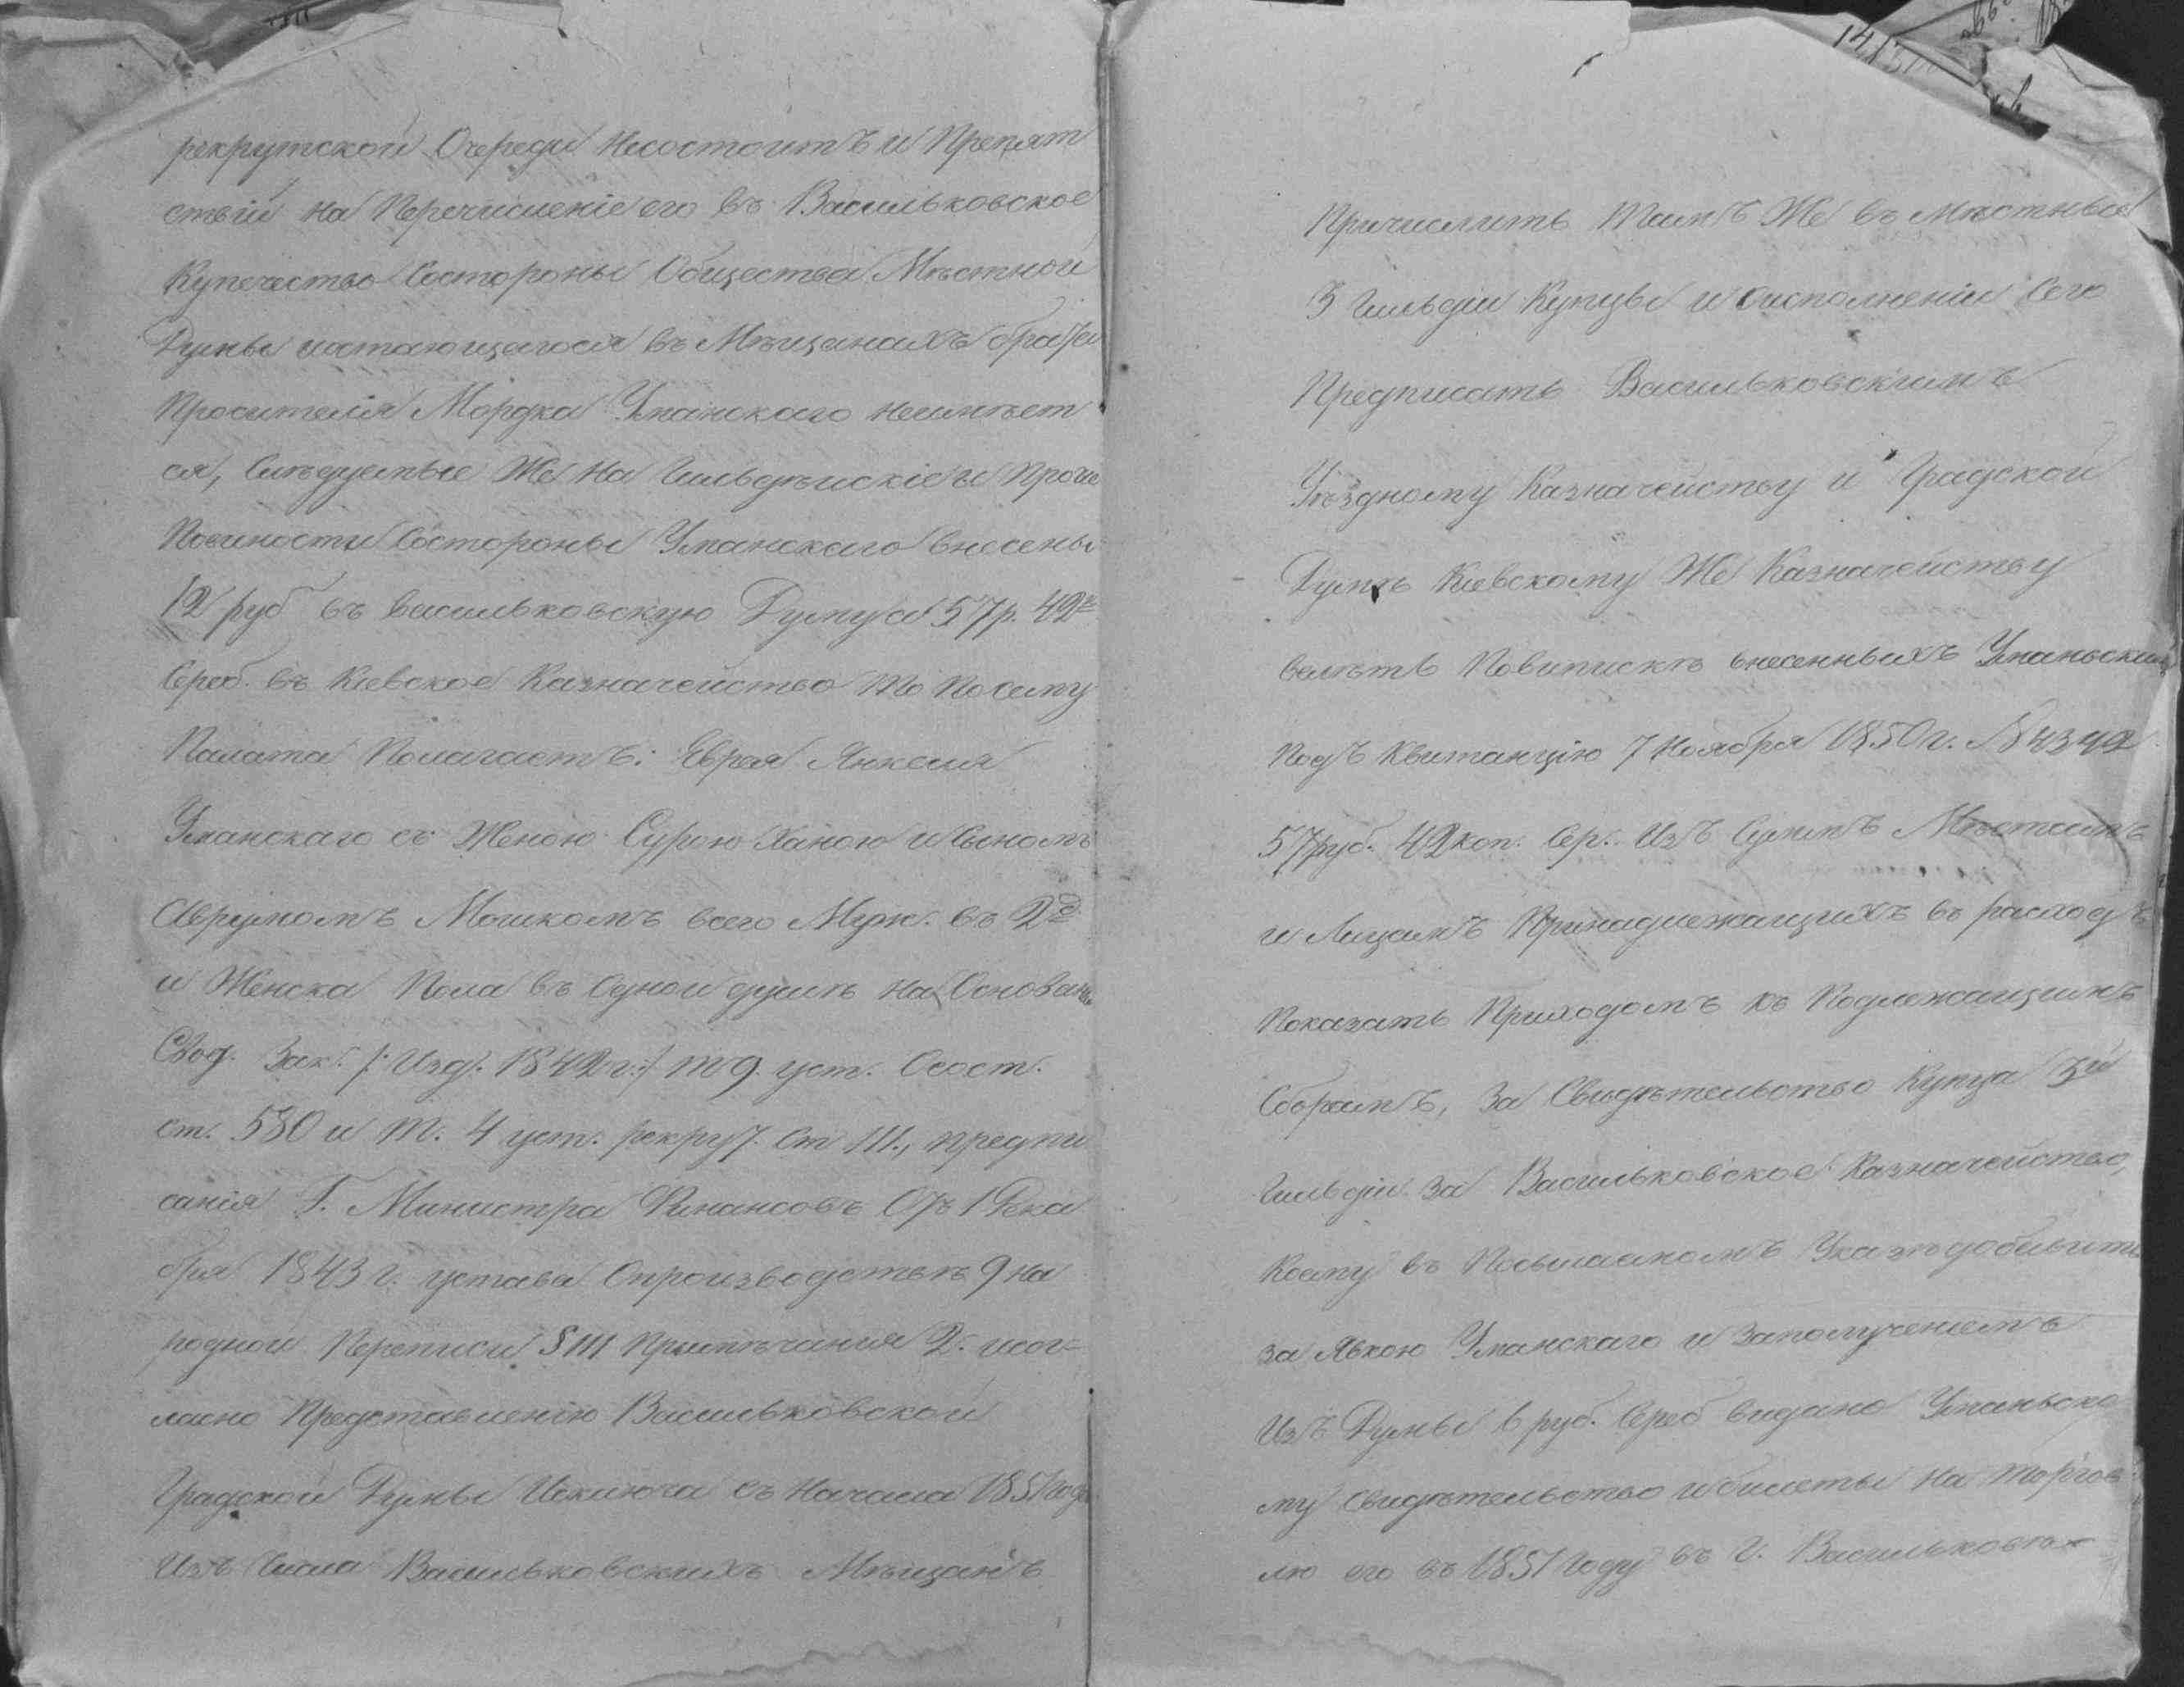 рекрутской Очереди Несостоитъ и Препят
ствій на Перечисленіе его въ Васильковское
Купечество Состороны Общества Мѣстной
Думы и остающагося въ Мѣщанахъ брата
Просителя Мордка Уманскаго неимѣет
ся, Слѣдуемые Же На Гильдѣйскіе и Прочие
Повиности Состороны Уманскаго внесены
12 руб въ Васильковскую Думу а 57 р. 42 к
Сереб. въ Кіевское Казначейство То По сему
Палата Полагаетъ: Еврея Янкеля
Уманскаго съ Женою Сурою Ханою и Сыномъ
Аврумомъ Мошкомъ всего Муж. въ 2хъ
и Женска Пола въ Одной душѣ На Основан
Свод. Зак. /: Изд. 1842 г.:/ т 9. уст. Осост.
ст. 530 и Т. 4 уст. рекрут. Ст 111., предпи
санія Г. Министра Финансовъ Отъ 1 Дека
бря 1843 г. устава Опроизводствѣ 9 на
родной Переписи § 111 Примѣчания 2. и сог-
ласно Представленію Васильковской
Градской Думы Исключа съ Начала 1851 года
Изъ Числа Васильковскихъ Мѣщанъ
14
Причислить Тамъ Же въ Мѣстные
3 Гильдіи Купцы и Оисполненіи Сего
Предписать Васильковскимъ
Уѣздному Казначейству и Градской
Думѣ Кіевскому Же Казначейству
велѣть Повыпискѣ внесенныхъ Уманьским
Подъ Квитанцію 7 Ноября 1850 г. № 4342
57 руб. 42 коп. Сер. Изъ Суммъ Мѣстамъ
и Лицамъ Принадлежащихъ въ расходъ
Показать Приходомъ къ Подлежащимъ
Сборамъ, За Свидѣтельство Купца 3й
Гильдіи за Васильковское Казначейство,
Коему въ Посылаемомъ Указѣ
за Явкою Уманскаго и Заполученіемъ
Изъ Думы 6 руб. Сереб выдано Уманьско
му Свидѣтельство и билеты На Торгов
лю его въ 1851 Году въ Г. Васильковѣ